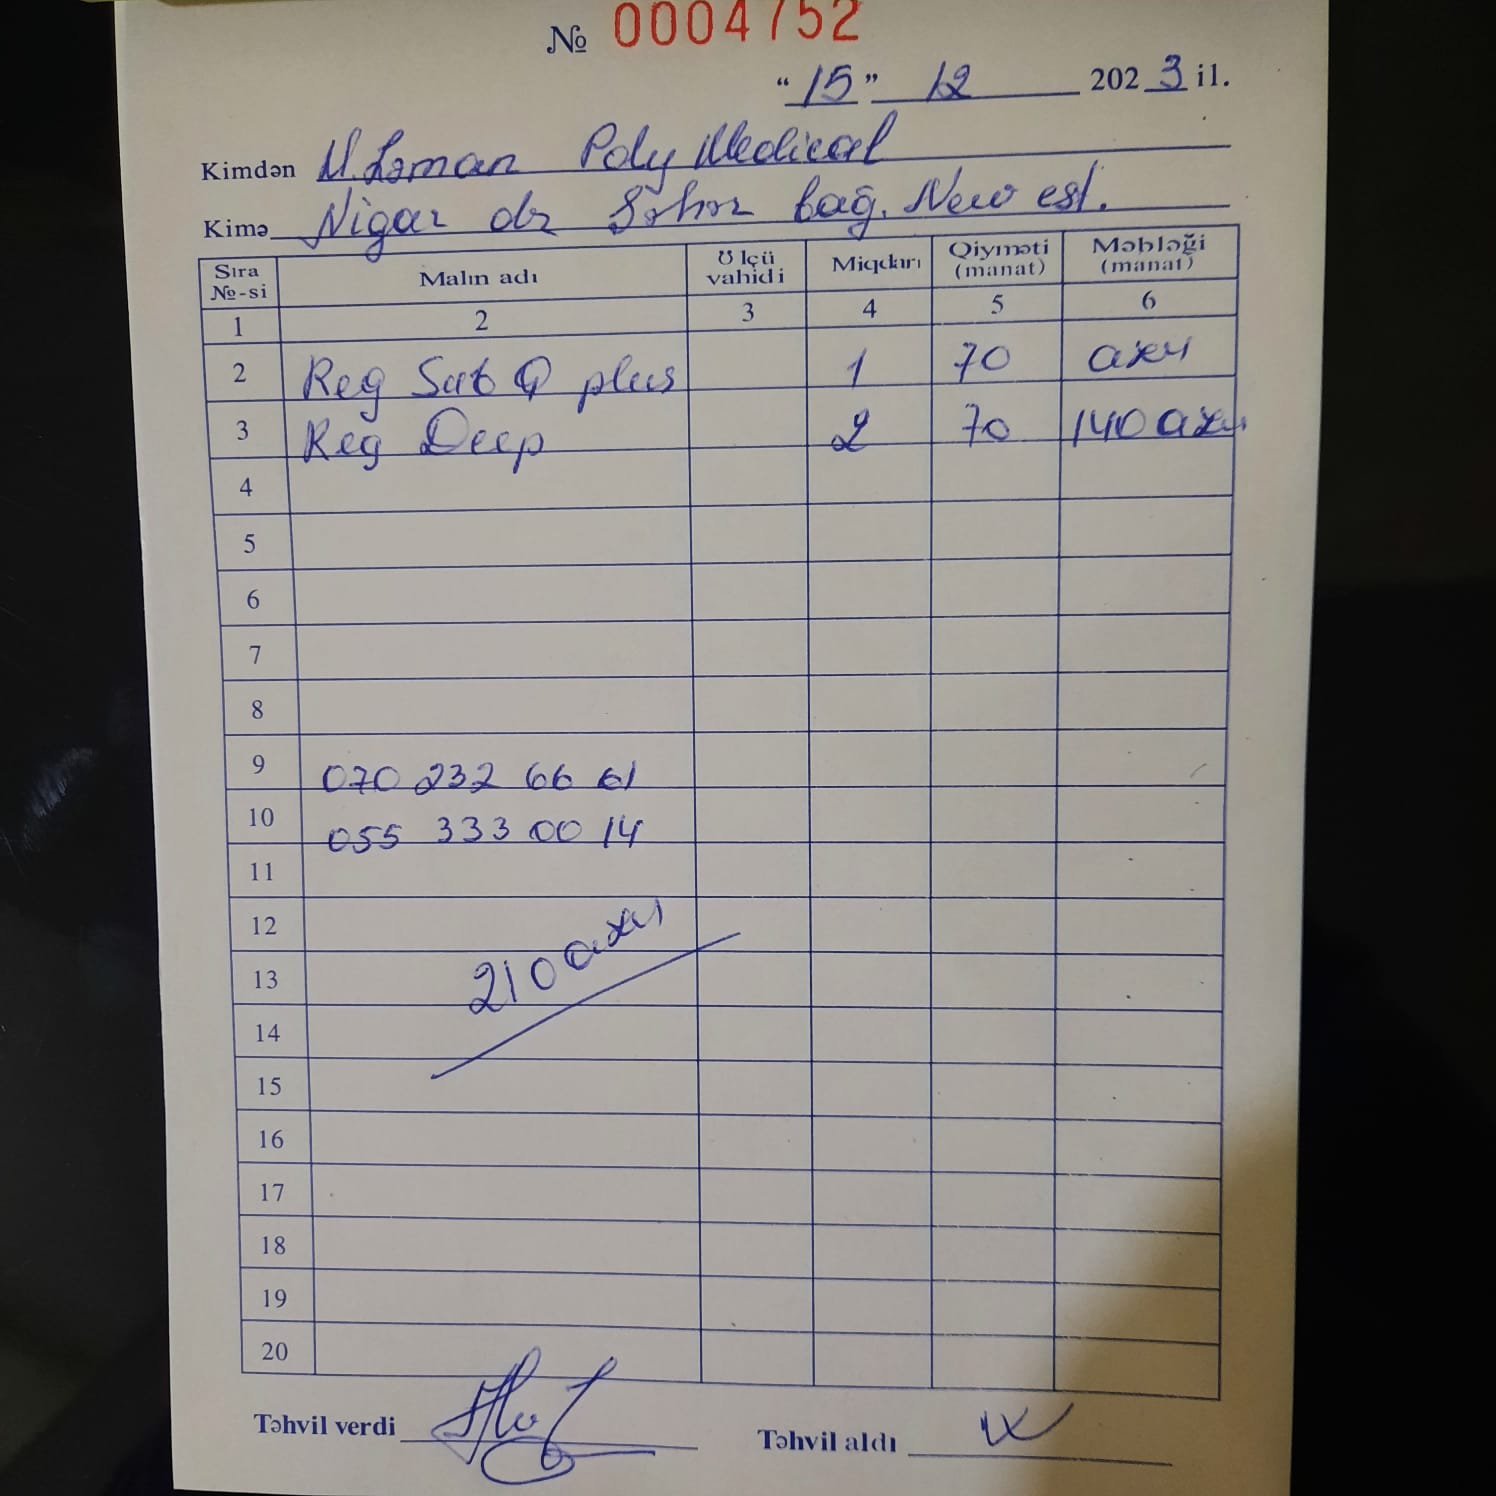 № 0004752
"15" 12 2023 il.
Kimdən M. Ləman Poly Medical
Kimə Nigar dr Səhər bağ. New est.
Sıra №-si Malın adı Ölçü vahidi Miqdarı Qiyməti (manat) Məbləği (manat)
1 2 3 4 5 6
2 Reg Sub Q plus 1 70 azn
3 Reg Deep 2 70 140 azn
4
5
6
7
8
9 070 232 66 61
10 055 333 00 14
11
12
13 210 azn
14
15
16
17
18
19
20
Təhvil verdi Təhvil aldı